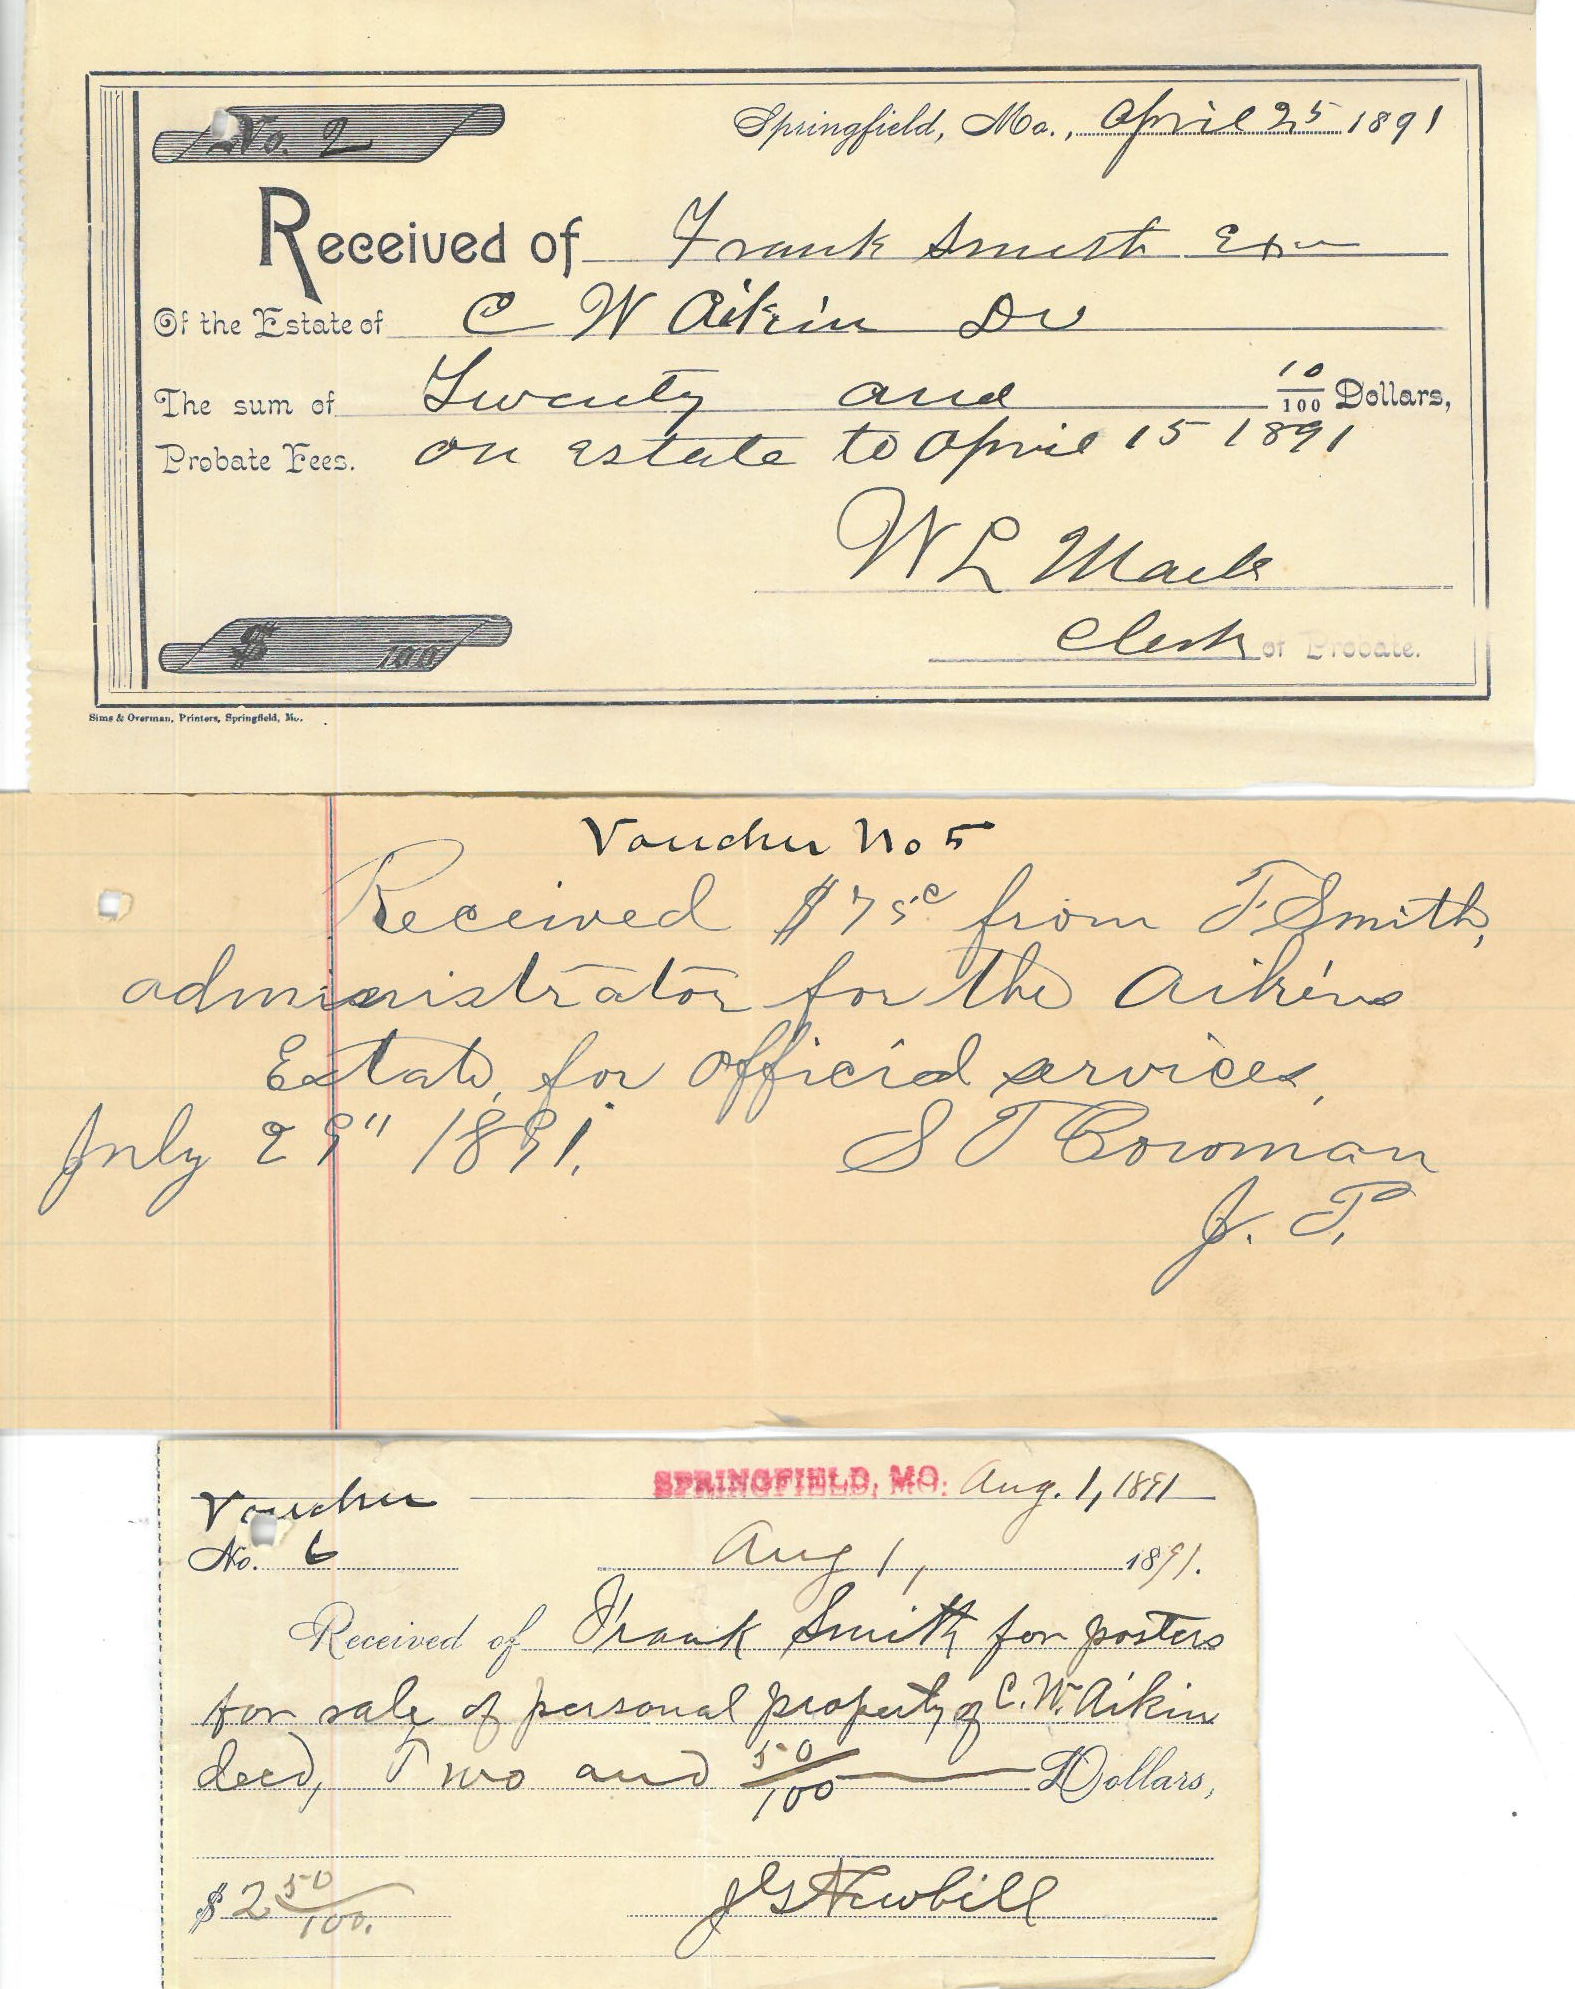 No. 2
Springfield, Mo., April 25 1891
Received of Frank Smith Exr
Of the Estate of C W Aikin
The sum of Twenty and 10/100 Dollars,
Probate Fees. on Estate to April 15 1891
W L Mack
Clerk of Probate.
$ 100
Sims & Overman, Printers, Springfield, Mo.
Voucher No 5
Received $ 75c from F. Smith,
administrator for the Aikins
Estate, for official services,
July 29" 1891. S T Bowman
J. P.
Voucher SPRINGFIELD, MO. Aug. 1, 1891
No. 6 Aug 1, 1891.
Received of Frank Smith for posters
for sale of personal property of C. W. Aikin
decd, Two and 50/100 Dollars,
$2 50/100. J G Newbill